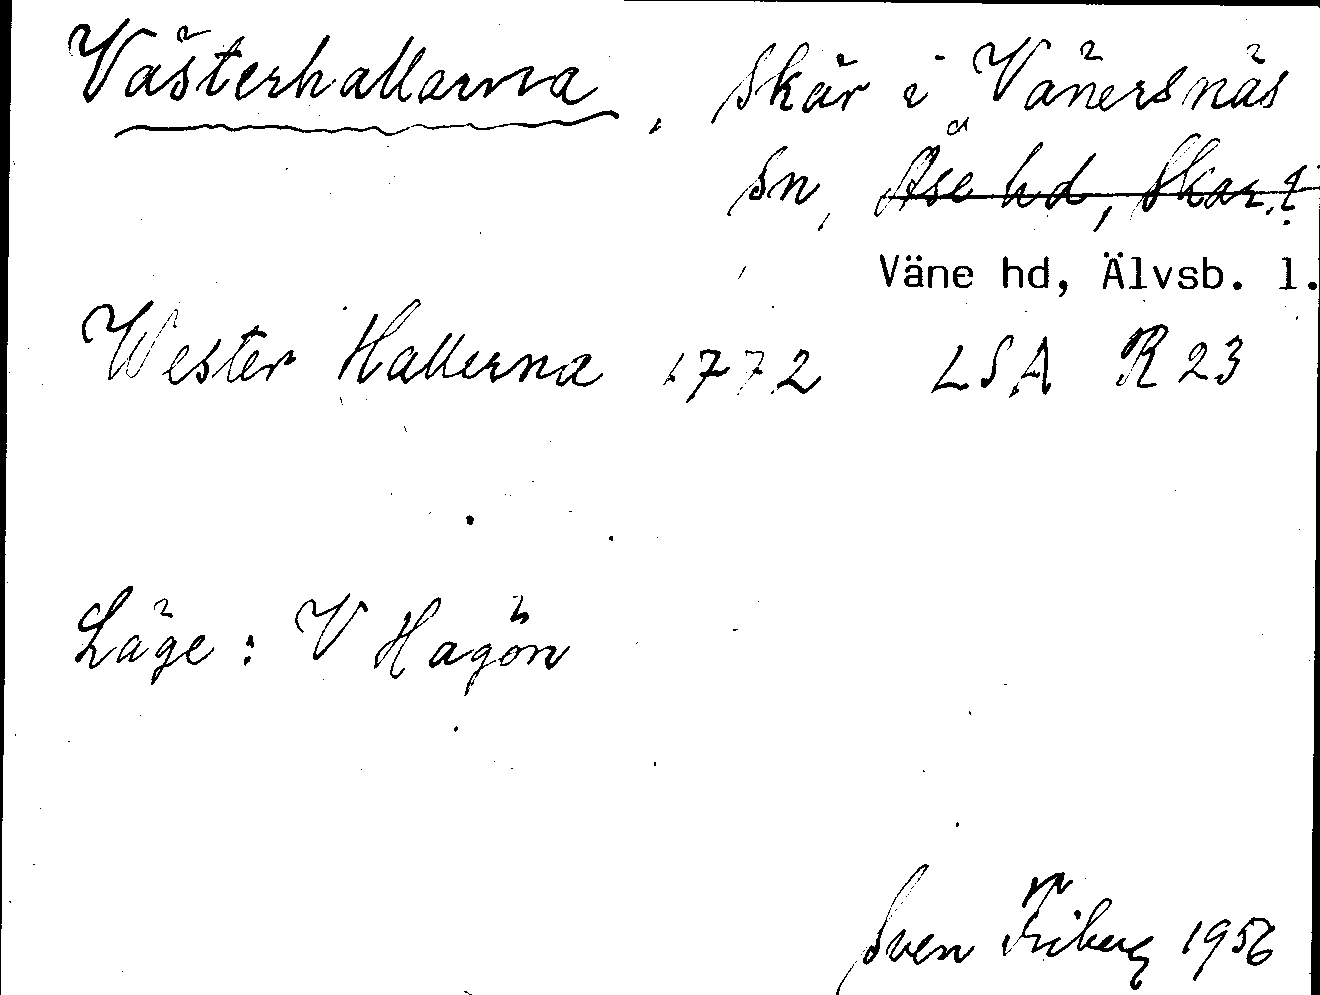 Västerhallarna, skär i Vänersnäs
sn, Åse hd, Skar. l
Väne hd, Älvsb. l.
Wester Hallerna 1772 LSA R 23
Läge: V Hagön
Sven Friberg 1956